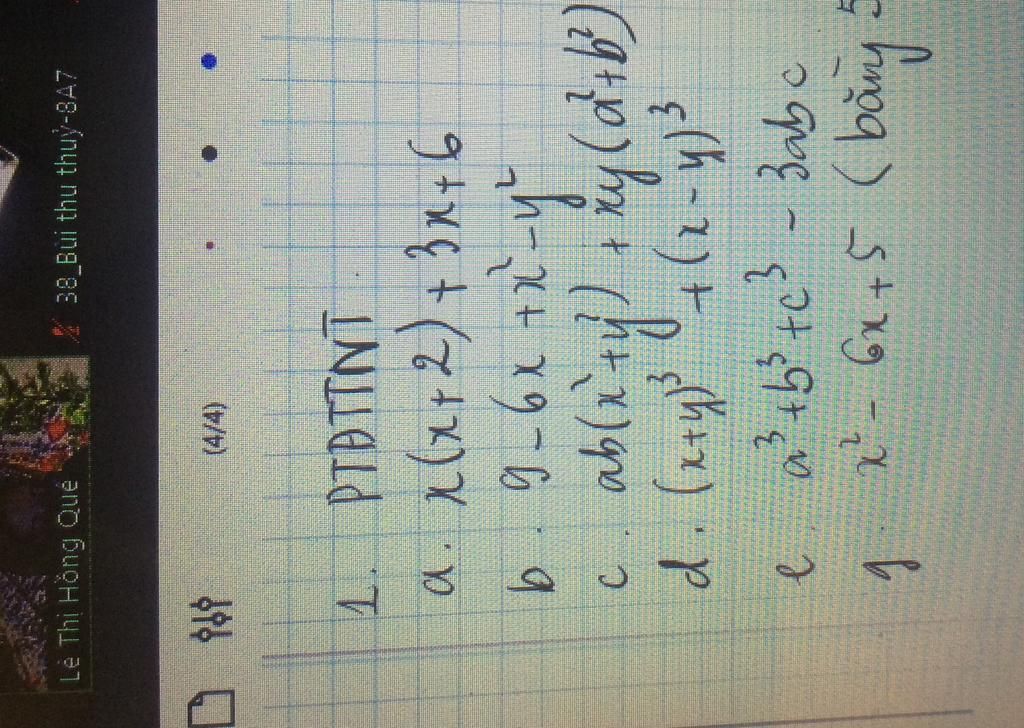 Lê Thị Hồng Quế
38_Bùi thu thuỷ-8A7
(4/4)
1. PTĐTTNT
a. x(x+2) + 3x + 6
b. 9 - 6x + x² - y²
c. ab(x² + y²) + xy(a² + b²)
d. (x+y)³ + (x-y)³
e. a³ + b³ + c³ - 3abc
g. x² - 6x + 5 (bằng 5